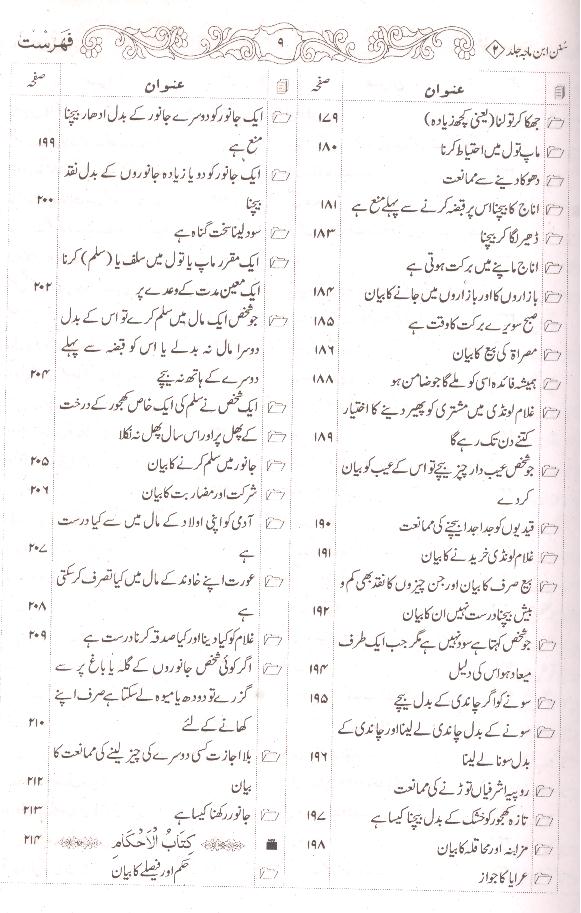 سُنن ابن ماجہ جلد ۲ ۹ فہرست
عنوان صفحہ
جھکا کر تولنا (یعنی کچھ زیادہ) ۱۷۹
ماپ تول میں احتیاط کرنا ۱۸۰
دھوکا دینے سے ممانعت
اناج کا بیچنا اس پر قبضہ کرنے سے پہلے منع ہے ۱۸۱
ڈھیر لگا کر بیچنا ۱۸۳
اناج ماپنے میں برکت ہوتی ہے
بازاروں کا اور بازاروں میں جانے کا بیان ۱۸۴
صبح سویرے برکت کا وقت ہے ۱۸۵
مصراۃ کی بیع کا بیان ۱۸۶
ہمیشہ فائدہ اسی کو ملے گا جو ضامن ہو ۱۸۸
غلام لونڈی میں مشتری کو پھیر دینے کا اختیار
کتنے دن تک رہے گا ۱۸۹
جو شخص عیب دار چیز بیچے تو اس کے عیب کو بیان
کر دے
قیدیوں کو جدا جدا بیچنے کی ممانعت ۱۹۰
غلام لونڈی خریدنے کا بیان ۱۹۱
بیع صرف کا بیان اور جن چیزوں کا نقد بھی کم و
بیش بیچنا درست نہیں ان کا بیان ۱۹۲
جو شخص کہتا ہے سود نہیں ہے مگر جب ایک طرف
میعاد ہو اس کی دلیل ۱۹۴
سونے کو اگر چاندی کے بدل بیچے ۱۹۵
سونے کے بدل چاندی لے لینا اور چاندی کے
بدل سونا لے لینا ۱۹۶
روپیہ اشرفیاں توڑنے کی ممانعت
تازہ کھجور کو خشک کے بدل بیچنا کیسا ہے ۱۹۷
مزابنہ اور محاقلہ کا بیان ۱۹۸
عرایا کا جواز
عنوان صفحہ
ایک جانور کو دوسرے جانور کے بدل ادھار بیچنا
منع ہے ۱۹۹
ایک جانور کو دو یا زیادہ جانوروں کے بدل نقد
بیچنا ۲۰۰
سود لینا سخت گناہ ہے
ایک مقرر ماپ یا تول میں سلف یا (سلم) کرنا
ایک معین مدت کے وعدے پر ۲۰۲
جو شخص ایک مال میں سلم کرے تو اس کے بدل
دوسرا مال نہ بدلے یا اس کو قبضہ سے پہلے
دوسرے کے ہاتھ نہ بیچے ۲۰۴
ایک شخص نے سلم کی ایک خاص کھجور کے درخت
کے پھل پر اور اس سال پھل نہ نکلا
جانور میں سلم کرنے کا بیان ۲۰۵
شرکت اور مضاربت کا بیان ۲۰۶
آدمی کو اپنی اولاد کے مال میں سے کیا درست
ہے ۲۰۷
عورت اپنے خاوند کے مال میں کیا تصرف کر سکتی
ہے ۲۰۸
غلام کو کیا دینا اور کیا صدقہ کرنا درست ہے ۲۰۹
اگر کوئی شخص جانوروں کے گلہ یا باغ پر سے
گزرے تو دودھ یا میوہ لے سکتا ہے صرف اپنے
کھانے کے لئے ۲۱۰
بلا اجازت کسی دوسرے کی چیز لینے کی ممانعت کا
بیان ۲۱۲
جانور رکھنا کیسا ہے ۲۱۳
کِتَابُ الْاَحْکَامِ ۲۱۴
حکم اور فیصلے کا بیان